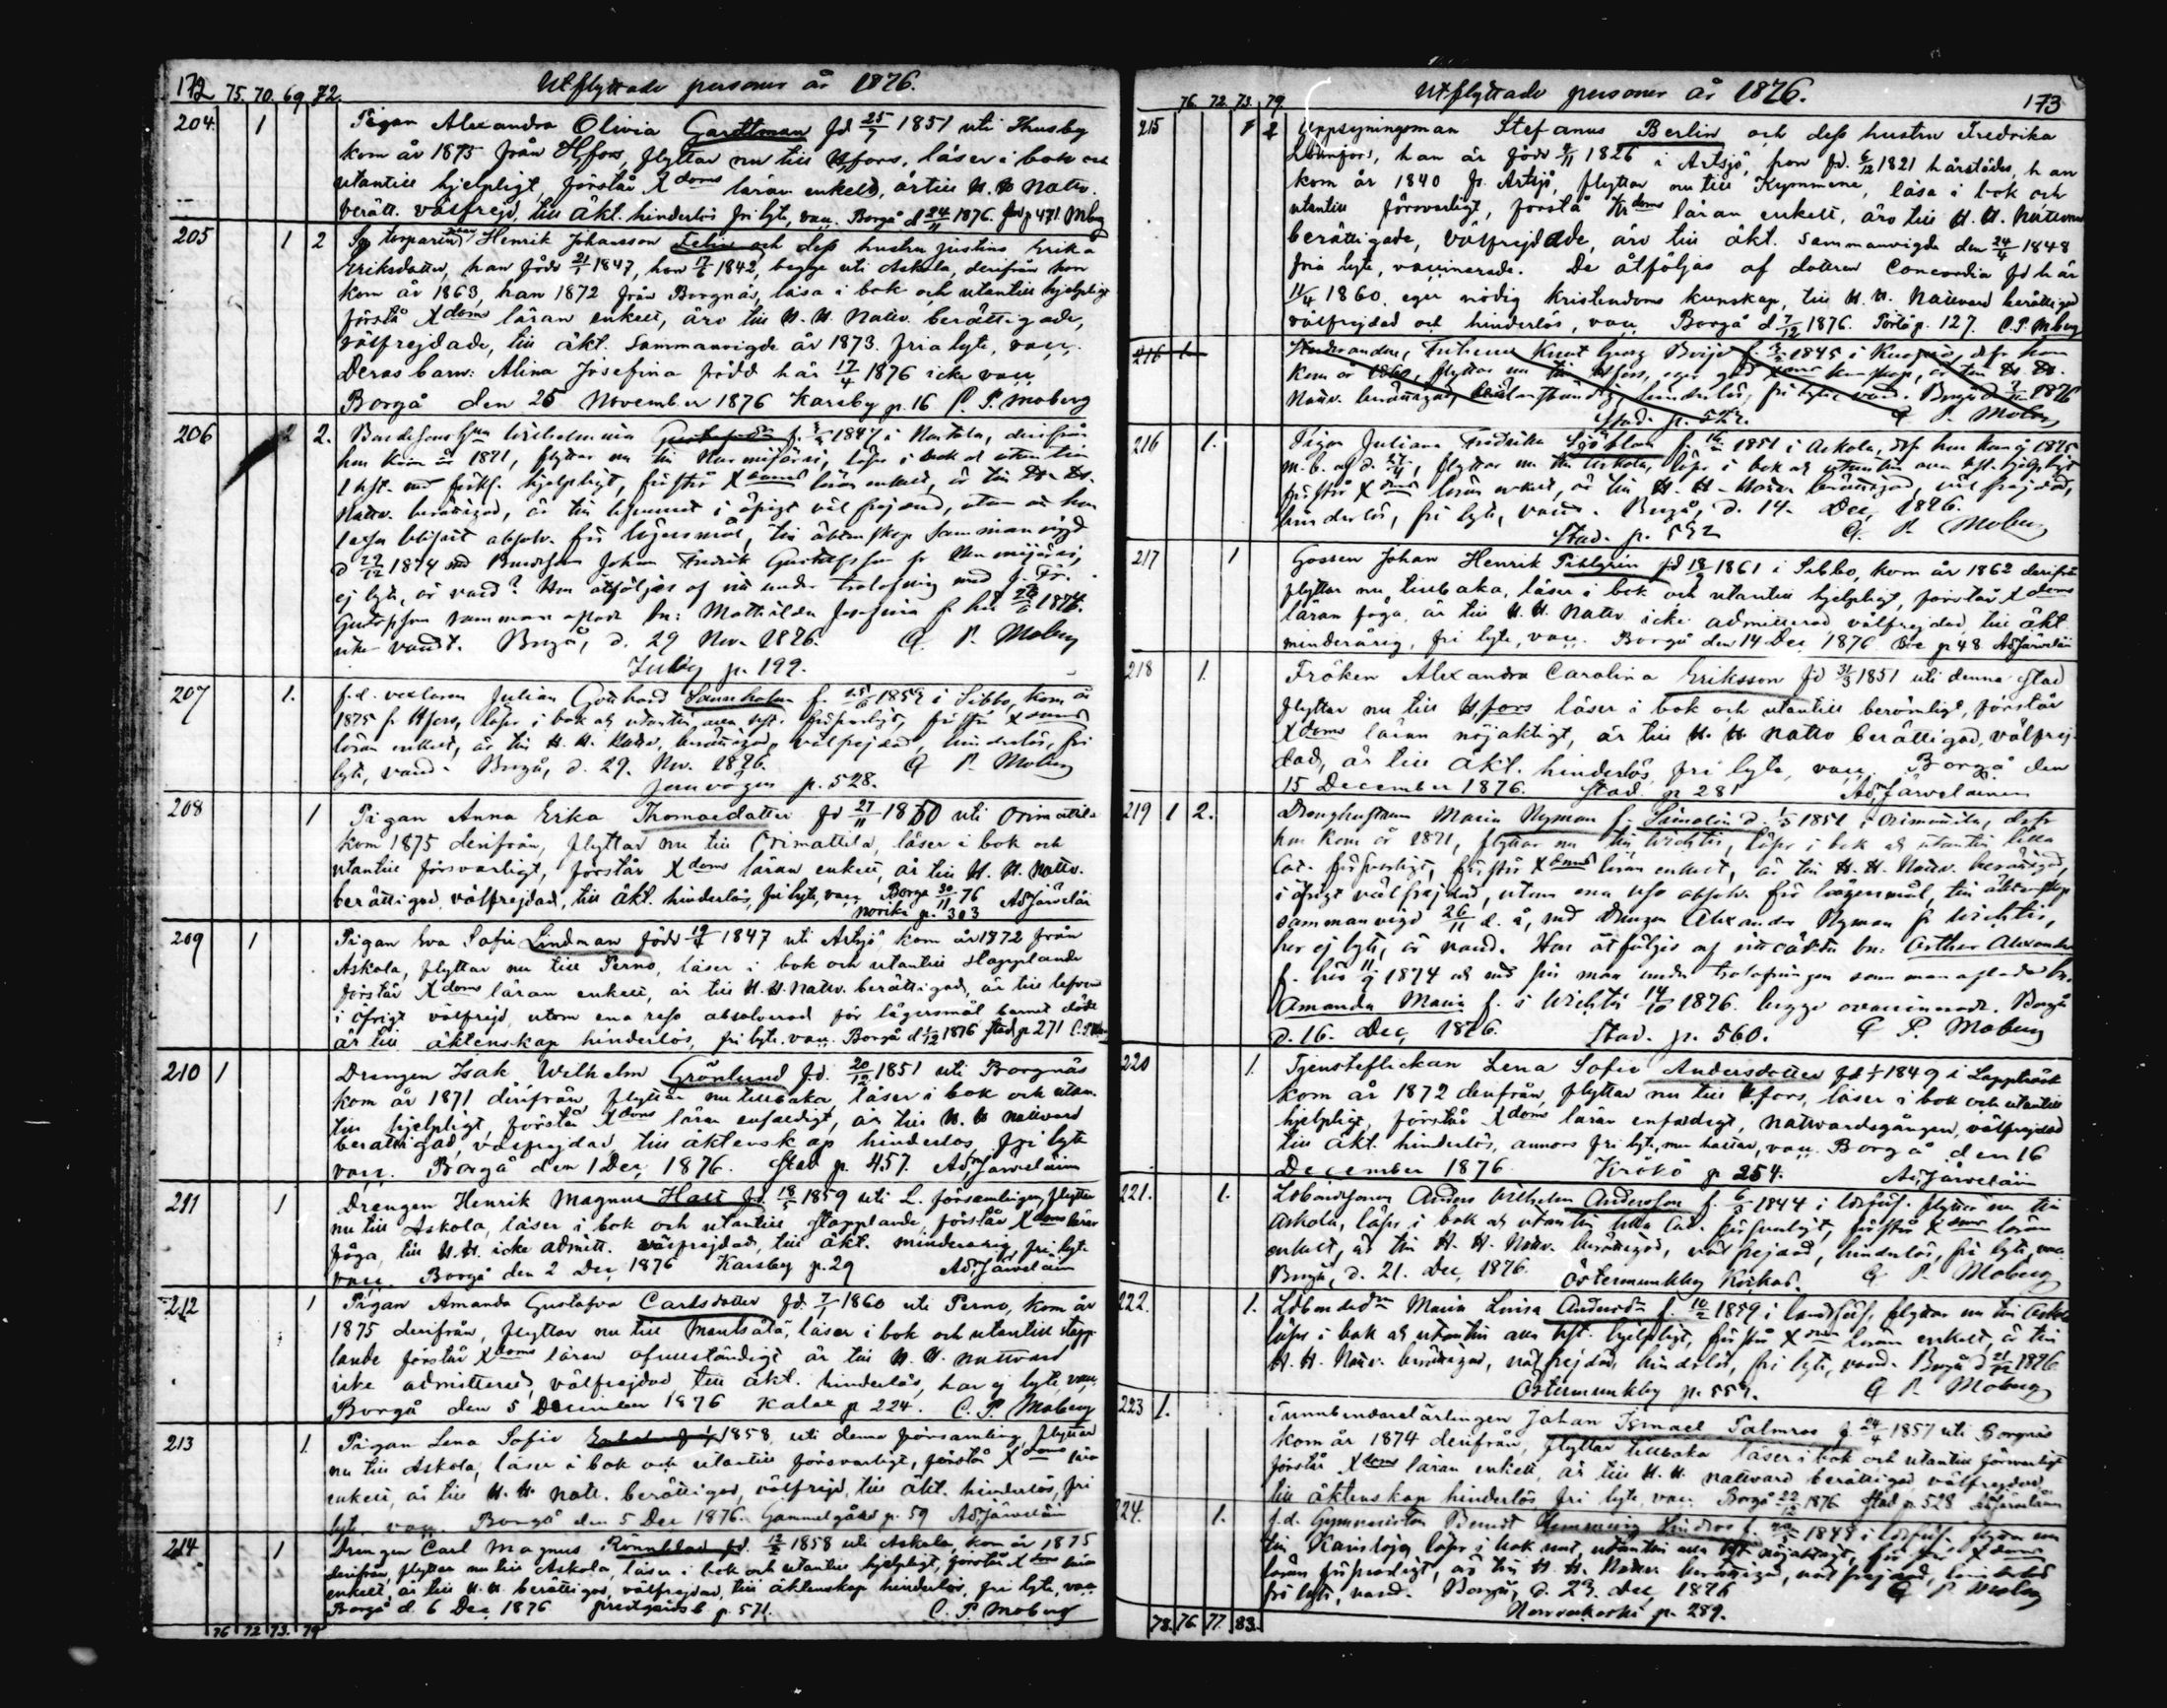 172 75. 70. 69. 72. Utflyttade personer år 1876.
204. 1 Pigan Alexandra Olivia Garttman fd 25/7 1851 uti Thusby
kom år 1875 från Hfors, flyttar nu till Hfors, läser i bok och
utantill hjelpligt, förstår Xdoms läran enkelt, är till H. H. Nattv.
berätt. välfrejd, till äkt. hinderlös fri lyte, vacc. Borgå d 24/11 1876. p 471 Mbg
205 1 2 Henrik Johansson Felin och dess hustru Justina Erika
Eriksdotter, han född 21/1 1847, hon 17/6 1842, begge uti Askola, derifrån hon
kom år 1863, han 1872 från Borgnäs, läsa i bok och utantill hjelpligt
förstå Xdoms läran enkelt, äro till H. H. Nattv. berättigade,
välfrejdade, till äkt. sammanvigde år 1873. fria lyte, vacc.
Deras barn: Alina Josefina född här 17/4 1876 icke vacc
Borgå den 25 November 1876 Karsby p. 16 C. P. Moberg
206 2 2. Wilhelmina 1847 i derifrån
hon kom år 1871, flyttar nu till Nurmijärvi, läser i bok och utantill
hjelpligt, förstår Xdoms läran enkelt, är till H. H.
Nattv. berättigad, är till lefvernet i öfrigt välfrejdad, utom att hon
blifvit absolv. för lägersmål, till äktenskap sammanvigd
d 27/12 1874 med Johan Fredrik Gustafsson fr Nurmijärvi,
ej lyte, är vacc? Hon åtföljes af under trolofning med
Gustafsson sammanaflade bn: Mathilda Josefina f. här 1874.
icke vacc. Borgå, d. 29 Nov. 1876. C. P. Moberg
p. 199.
207 1. f.d. Julian Gotthard f. 1859 i Sibbo, kom år
1875 fr Hfors, läser i bok och utantill försvarligt, förstår Xdoms
läran enkelt, är till H. H. Nattv. berättigad, välfrejdad, hinderlös, fri
lyte, vacc. Borgå, d. 29. Nov. 1876. C. P. Moberg
Jernvägen p. 528.
208 1 Pigan Anna Erika Thomasdotter fd 27/11 1850 uti Orimattila
kom 1875 derifrån, flyttar nu till Orimattila, läser i bok och
utantill försvarligt, förstår Xdoms läran enkelt, är till H. H. Nattv.
berättigad, välfrejdad, till äkt. hinderlös, fri lyte, vacc Borgå 30/11 76 AdJärveläin
p. 303
209 1 Pigan Eva Sofia Lindman född 19/4 1847 uti Artsjö kom år 1872 från
Askola, flyttar nu till Perno, läser i bok och utantill stapplande
förstår Xdoms läran enkelt, är till H. H. Nattv. berättigad, är till lefvernet
i öfrigt välfrejd, utom ena resa absolverad för lägersmål barnet dödt
är till äktenskap hinderlös, fri lyte, vacc. Borgå d 1/12 1876 stad p 271
210 1 Drengen Isak Wilhelm Grönlund f.d. 20/12 1851 uti Borgnäs
kom år 1871 derifrån, flyttar nu tillbaka, läser i bok och utan-
till hjelpligt, förstår Xdoms läran enfaldigt, är till H. H nattvard
berättigad, välfrejdad, till äktenskap hinderlös, fri lyte
vacc. Borgå den 1 Dec 1876. Stad p. 457. Ad. Järveläin
211 1 Drengen Henrik Magnus Hall fd. 18/5 1859 uti L. församlingen, flyttar
nu till Askola, läser i bok och utantill stapplande, förstår Xdoms läran
föga, till H. H. icke admitt. välfrejdad, till äkt. minderårig, fri lyte
vacc. Borgå den 2 Dec 1876 Karsby p. 29 Ad. Järveläin
212 1 Pigan Amanda Gustafva Carlsdotter fd. 7/1 1860 uti Perno, kom år
1875 derifrån, flyttar nu till Mäntsälä, läser i bok och utantill stapp-
lande förstår Xdoms läran ofullständigt är till H. H. nattvard
icke admitterad, välfrejdad till äkt. hinderlös, har ej lyte, vacc.
Borgå den 5 December 1876 Kalax p 224. C. P. Moberg
213 1. Pigan Lena Sofia 1858 uti denna församling, flyttar
nu till Askola, läser i bok och utantill försvarligt, förstår Xdoms läran
enkelt, är till H. H. natt. berättigad, välfrejd, till äkt. hinderlös, fri
lyte, vacc. Borgå den 5 Dec 1876. Gammelgård p. 59 AdJärveläin
214 1 Drengen Carl Magnus Rönnblad fd. 12/2 1858 uti Askola, kom år 1875
derifrån, flyttar nu till Askola, läser i bok och utantill hjelpligt, förstår Xdoms läran
enkelt, är till H. H. berättigad, välfrejdad, till äktenskap hinderlös, fri lyte, vacc
Borgå d. 6 Dec 1876 p. 571. C. P. Moberg
76 72 73. 79
76. 72. 73. 79. Utflyttade personer år 1876. 173
215 1 2 Uppsyningsman Stefanus Berlin och dess hustru Fredrika
han är född 9/11 1826 i Artsjö, frun fd. 6/12 1821 härstädes, han
kom år 1840 fr. Artsjö, flyttar nu till Kymmene, läsa i bok och
utantill försvarligt, förstå Krdoms läran enkelt, äro till H. H. Nattvard
berättigade, välfrejdade, äro till äkt. sammanvigde den 24/4 1848
fria lyte, vaccinerade. De åtföljas af dottren Concordia fd här
11/4 1860, eger nödig kristendoms kunskap, till H. H. Nattvard berättigad
välfrejdad och hinderlös, vacc. Borgå d 7/12 1876. p. 127. C. P. Mberg
216 1. Knut Georg f. 1845 i
kom år 1860, flyttar nu till Hfors, eger god kunskap, är till H. H.
Nattv. berättigad, hinderlös, fri lyte, vacc. Borgå d 1876
Stad. p. C. P. Moberg
216 1. Pigan Juliana Fredrika Sjöblom f. 1851 i Askola, hon kom 1875
flyttar nu till Askola, läser i bok och utantill hjelpligt
förstår Xdoms läran enkelt, är till H. H. Nattv. berättigad, välfrejdad,
hinderlös, fri lyte, vacc. Borgå, d. 14. Dec, 1876.
Stad. p. 532 C. P. Moberg
217 1 Gossen Johan Henrik Pihlgrin fd 18/9 1861 i Sibbo, kom år 1862 derifrån
flyttar nu tillbaka, läser i bok och utantill hjelpligt, förstår Xdoms
läran föga, är till H. H. Nattv icke admitterad välfrejdad, till äkt.
minderårig, fri lyte, vacc. Borgå den 14 Dec 1876 p 48 AdJärveläin
218 1. Fröken Alexandra Carolina Eriksson fd 31/3 1851 uti denna Stad
flyttar nu till Hfors läser i bok och utantill berömligt, förstår
Xdoms läran nöjaktigt, är till H. H. nattv berättigad, välfrej-
dad, är till äkt. hinderlös, fri lyte, vacc. Borgå den
15 December 1876. Stad p 281 Ad. Järveläinen
219 1 2. Maria Nyman f. 1/5 1851 i Orimattila,
hon kom år 1871, flyttar nu till Wichtis, läser i bok och utantill lilla
Cat. försvarligt, förstår Xdoms läran enkelt, är till H. H. Nattv. berättigad,
i öfrigt välfrejdad, utom ena resa absolv. för lägersmål, till äktenskap
sammanvigd 26/11 d. å, med drengen Alexander Nyman fr Wichtis,
har ej lyte, är vacc. Hon åtföljes af sitt oäkta bn: Arthur Alexander
f. här 1874 och med sin man under trolofningen sammanaflade bn.
Amanda Maria f. i Wichtis 14/10 1876. begge ovaccinerade. Borgå
d. 16. Dec, 1876. Stad. p. 560. C. P. Moberg
220 1. Tjensteflickan Lena Sofia Andersdotter 1849 i Lappträsk
kom år 1872 derifrån, flyttar nu till Hfors, läser i bok och utantill
hjelpligt, förstår Xdoms läran enfaldigt, nattvardsgången, välfrejdad
till äkt. hinderlös, annars fri lyte, men haltar, vacc. Borgå den 16
December 1876. p 254. Ad. Järveläin
221. 1. Anders Wilhelm Andersson f. 6/3 1844 i flyttar nu till
Askola, läser i bok och utantill lilla Cat. försvarligt, förstår Xdoms läran
enkelt, är till H. H. Nattv. berättigad, välfrejdad, hinderlös, fri lyte, vacc.
Borgå, d. 21. Dec, 1876. Östermunkby C. P. Moberg
222. 1. Maria Lovisa f. 10/2 1859 i flyttar nu till Askola
läser i bok och utantill hjelpligt, förstår Xdoms läran enkelt, är till
H. H. Nattv. berättigad, välfrejdad, hinderlös, fri lyte, vacc. Borgå d 21/12 1876
Östermunkby p. 559. C. P. Moberg
223 1. Tunnbindarelärlingen Johan Ismael Palmros f. 24/4 1857 uti Borgnäs
kom år 1874 derifrån, flyttar tillbaka läser i bok och utantill försvarligt
förstår Xdoms läran enkelt, är till H. H. nattvard berättigad, välfrejdad,
till äktenskap hinderlös fri lyte, vacc. Borgå 22/12 1876 Stad p. 528 AdJärveläin
224. 1. f.d. Gymnasisten Lindros f. 1848 i flyttar nu
till Karislojo läser i bok och utantill nöjaktigt, förstår Xdoms
läran försvarligt, är till H. H. Nattv. berättigad, välfrejdad,
fri lyte, vacc. Borgå, d. 23. Dec, 1876 C. P. Moberg
p. 289.
78. 76. 77. 83.